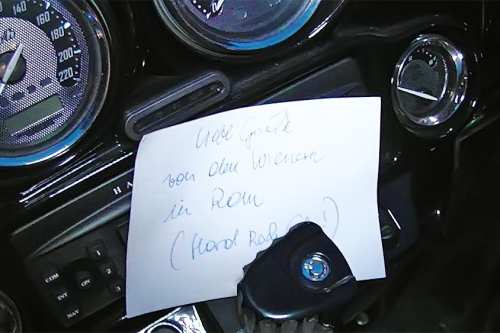 160
180
200
220
Liebe Grüße
von den Wienern
in Rom
(Hard Rock !)
HA
COM
INT
NAV